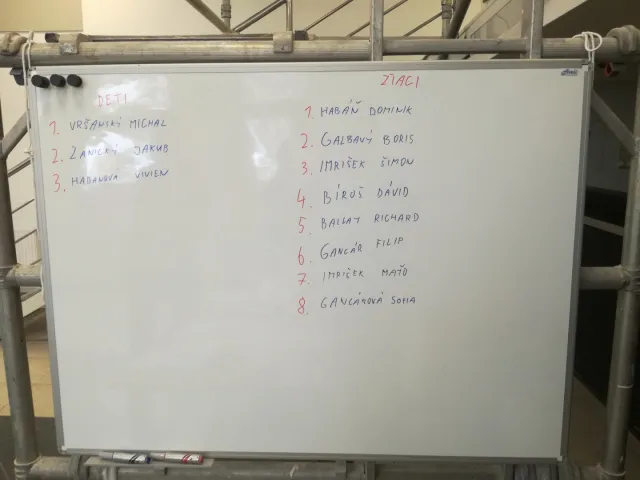 DETI
1. VRŠANSKÝ MICHAL
2. ZANICKÝ JAKUB
3. HABANOVA VIVIEN
ŽIACI
1. HABÁŇ DOMINIK
2. GALBAVÝ BORIS
3. IMRIŠEK ŠIMON
4. BÍROŠ DÁVID
5. BALLAY RICHARD
6. GANCÁR FILIP
7. IMRIŠEK MAŤO
8. GANCÁROVÁ SOFIA